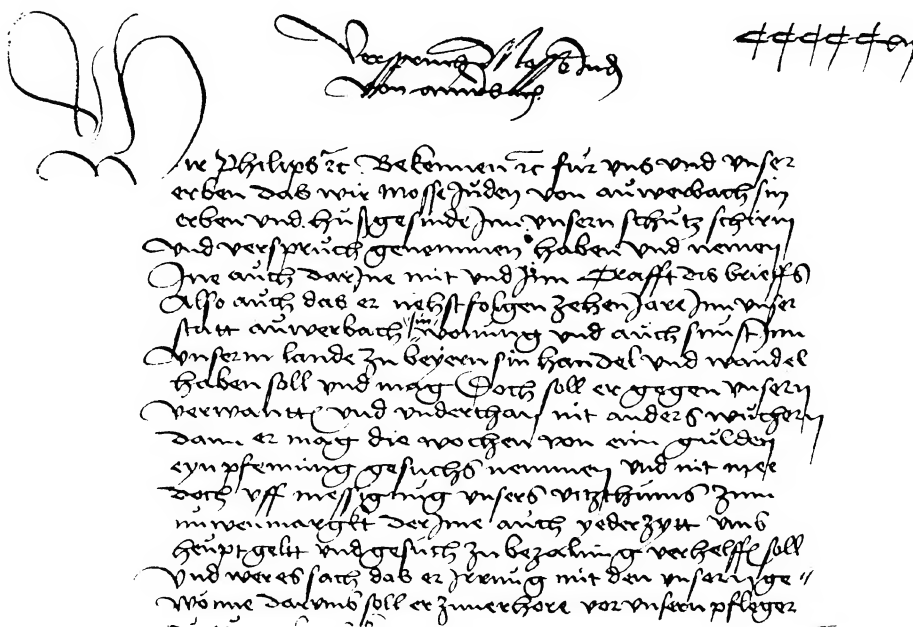 Verspruch Mosse Jud
von auwerbach
Wir Philips ꝛc Bekennen ꝛc fur vns vnd vnser
erben das wir Mosse Juden von auwerbach sin
erben vnd hußgesinde Inn vnsern schutz schirm
vnd verspruch genommen haben vnd nemen
Ine auch dar Ine mit vnd Inn Crafft dis brieffs
Also auch das er nehstfolgen zehen Jare Inn vnser
statt auwerbach sin wonung vnd auch sunst Inn
vnserm lande zu beyern sin handel vnd wandel
haben soll vnd mag Doch soll er gegen vnsern
verwantten vnd vnderthan nit anders wuchern
dann er mag die wochen von eim gulden
eyn pfenning gesuchs nemmen vnd nit mee
doch vff messigung vnsers vitzthumbs zum
nuwenmargkt der Ine auch yeder zytt vmb
heuptgeltt vnd gesuch zu bezalung verhelffen soll
vnd wer es sach das er Irrung mit den vnsern ge
wonne darumb soll er zuuerhore vor vnsern pfleger